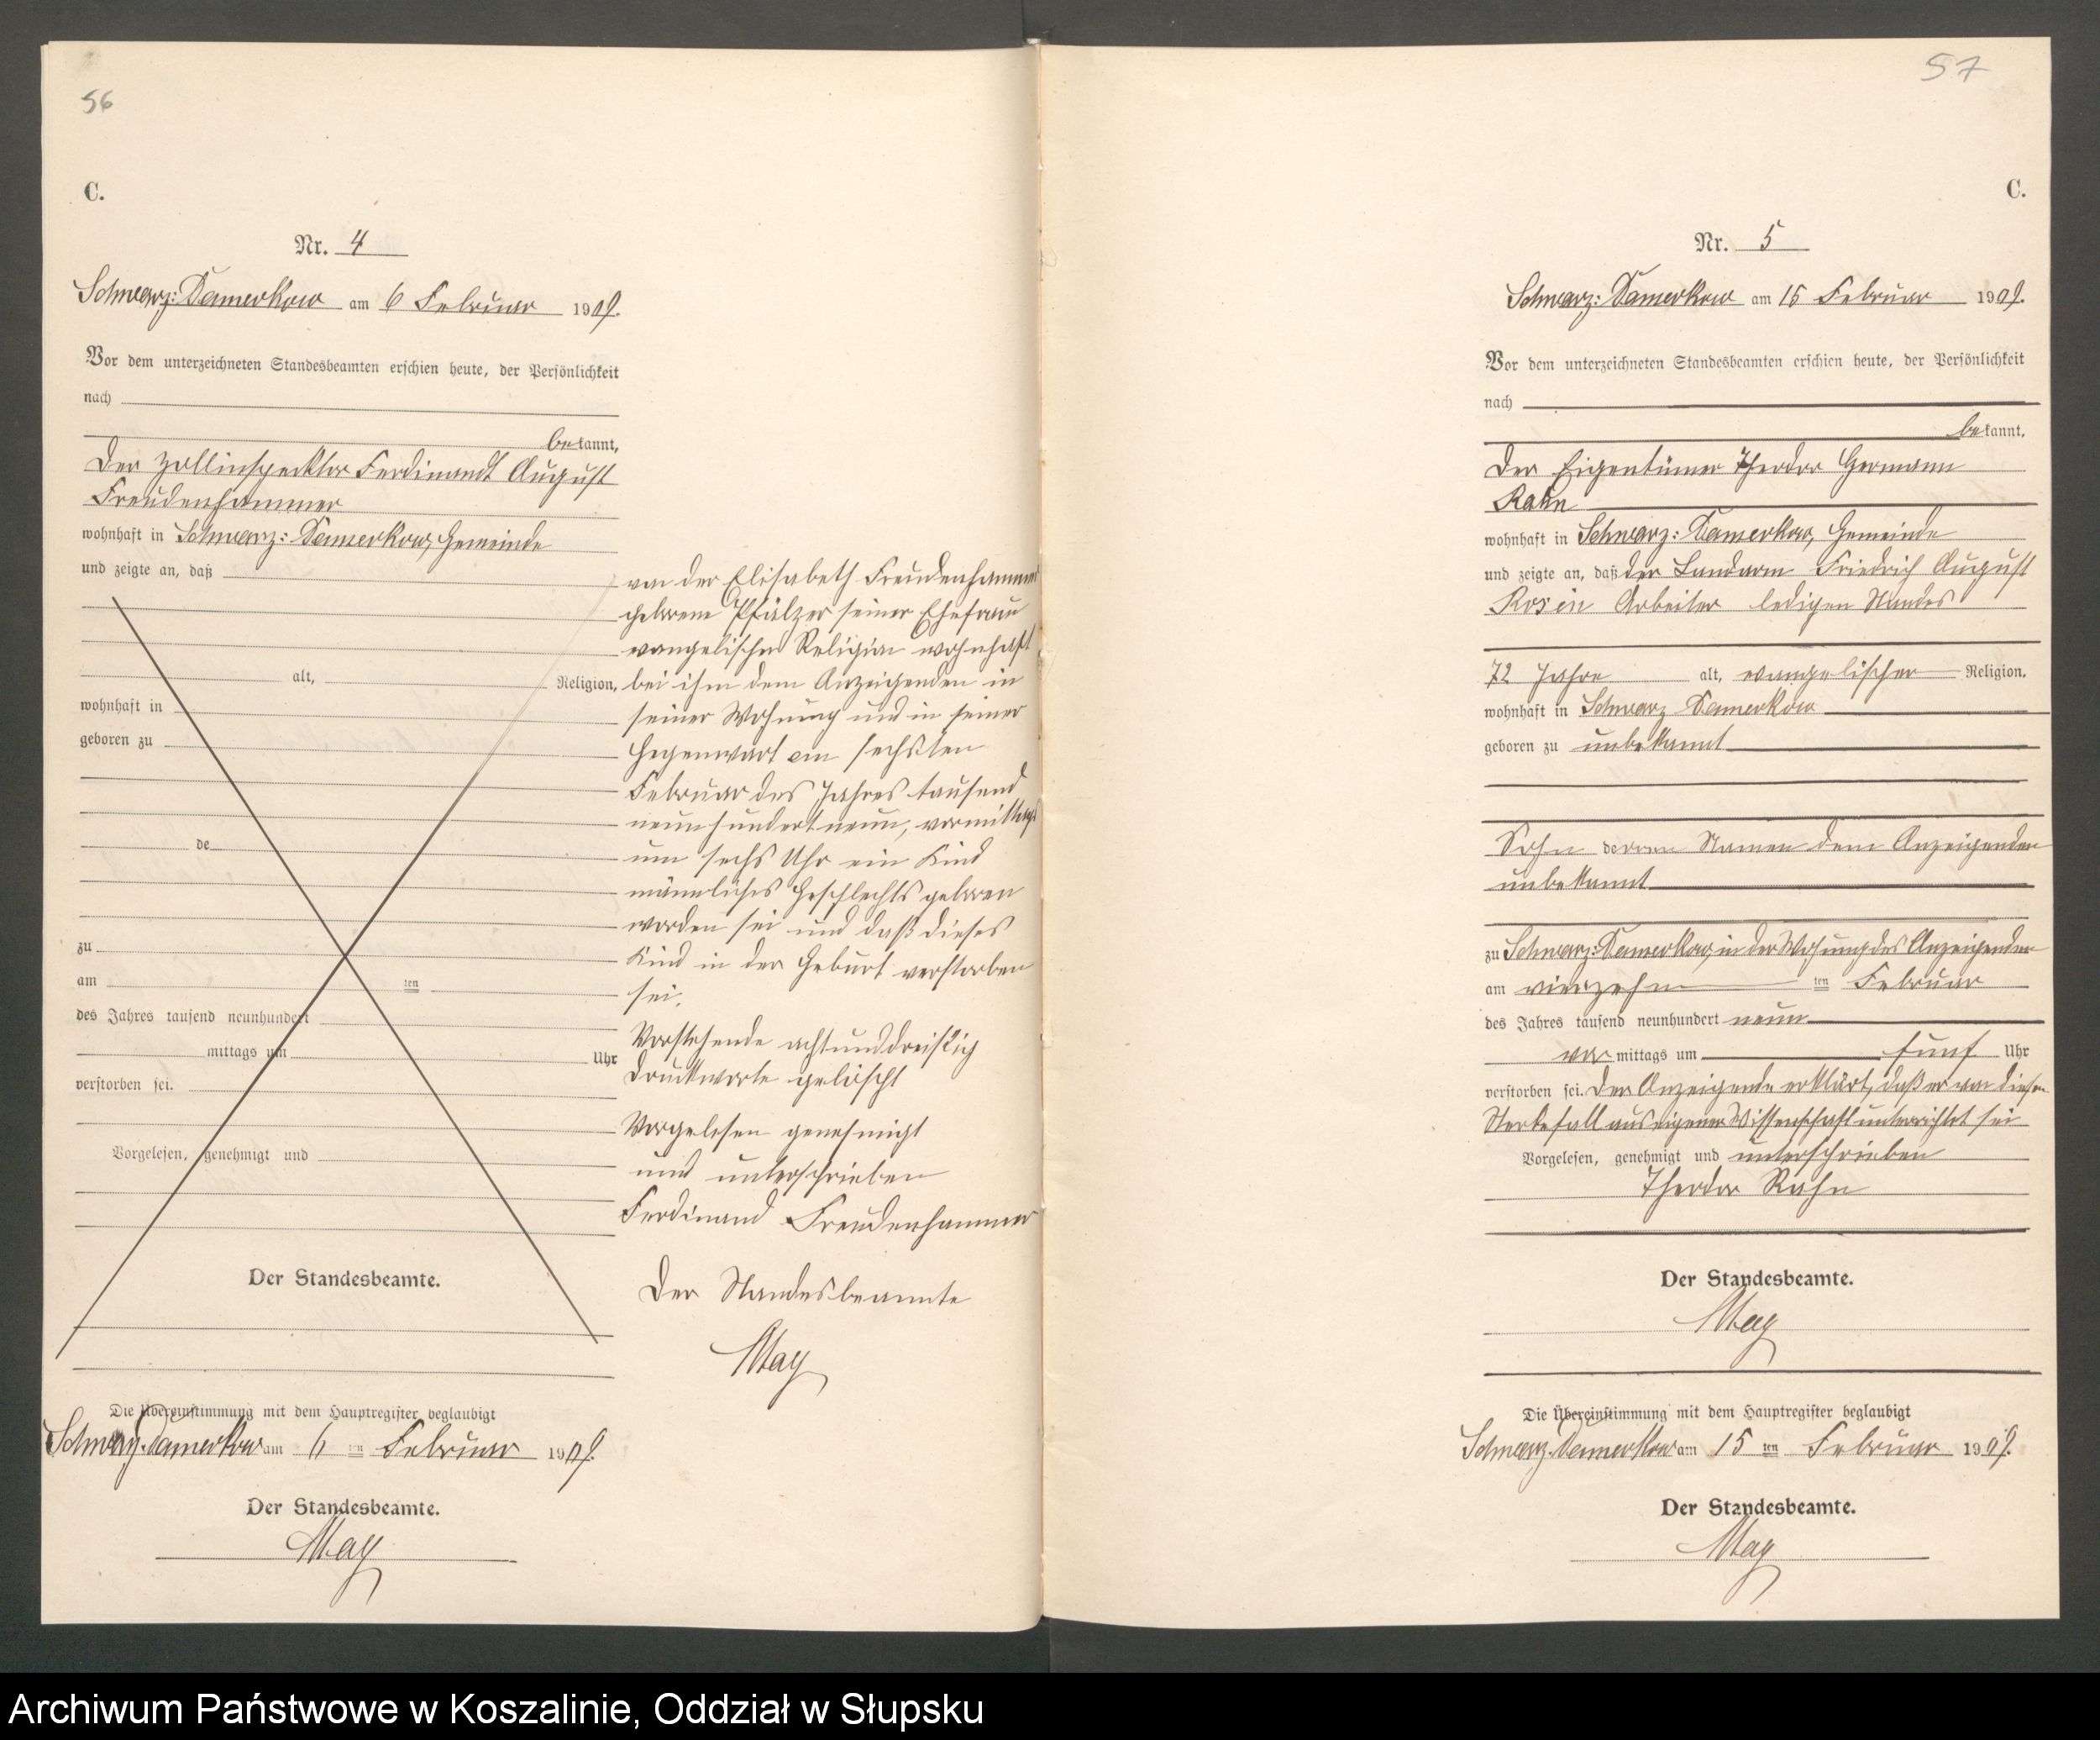 56
C.
Nr. 4
Schwarz: Damerkow am 6 Februar 1909.
Vor dem unterzeichneten Standesbeamten erschien heute, der Persönlichkeit
nach
bekannt,
der Zollinspecktor Ferdinandt August
Freudenhammer
wohnhaft in Schwarz: Damerkow, Gemeinde
und zeigte an, daß
alt, Religion,
wohnhaft in
geboren zu
de
zu
am ten
des Jahres tausend neunhundert
mittags um Uhr
verstorben sei.
Vorgelesen, genehmigt und
Der Standesbeamte.
von der Elisabeth Freudenhammer
geborene Pfälzer seiner Ehefrau
evangelischer Religion wohnhaft
bei ihm dem Anzeigenden in
seiner Wohnung und in seiner
Gegenwart am sechsten
Februar des Jahres tausend
neunhundertneun, vormittags
um sechs Uhr ein Kind
männliches Geschlechts geboren
worden sei und daß dieses
Kind in der Geburt verstorben
sei.
Vorstehende achtunddreißig
Druckworte gelöscht
Vorgelesen genehmigt
und unterschrieben
Ferdinand Freudenhammer
Der Standesbeamte
May
Die Übereinstimmung mit dem Hauptregister beglaubigt
Schwarz: Damerkow am 6 ten Februar 1909.
Der Standesbeamte.
May
57
C.
Nr. 5
Schwarz: Damerkow am 15 Februar 1909.
Vor dem unterzeichneten Standesbeamten erschien heute, der Persönlichkeit
nach
bekannt,
der Eigentümer Theodor Germann
Rahn
wohnhaft in Schwarz: Damerkow, Gemeinde
und zeigte an, daß der Landarm Friedrich August
Rosin Arbeiter ledigen Standes
72 Jahre alt, evangelischer Religion,
wohnhaft in Schwarz Damerkow
geboren zu unbekannt
Sohn derren Namen dem Anzeigenden
unbekannt
zu Schwarz: Damerkow, in der Wohnung des Anzeigenden
am vierzehn ten Februar
des Jahres tausend neunhundert neun
vor mittags um fünf Uhr
verstorben sei. Der Anzeigende erklärt, daß er von diesem
Sterbefall aus eigener Wissenschaft unterrichtet sei
Vorgelesen, genehmigt und unterschrieben
Theodor Rahn
Der Standesbeamte.
May
Die Übereinstimmung mit dem Hauptregister beglaubigt
Schwarz: Damerkow am 15 ten Februar 1909.
Der Standesbeamte.
May
Archiwum Państwowe w Koszalinie, Oddział w Słupsku